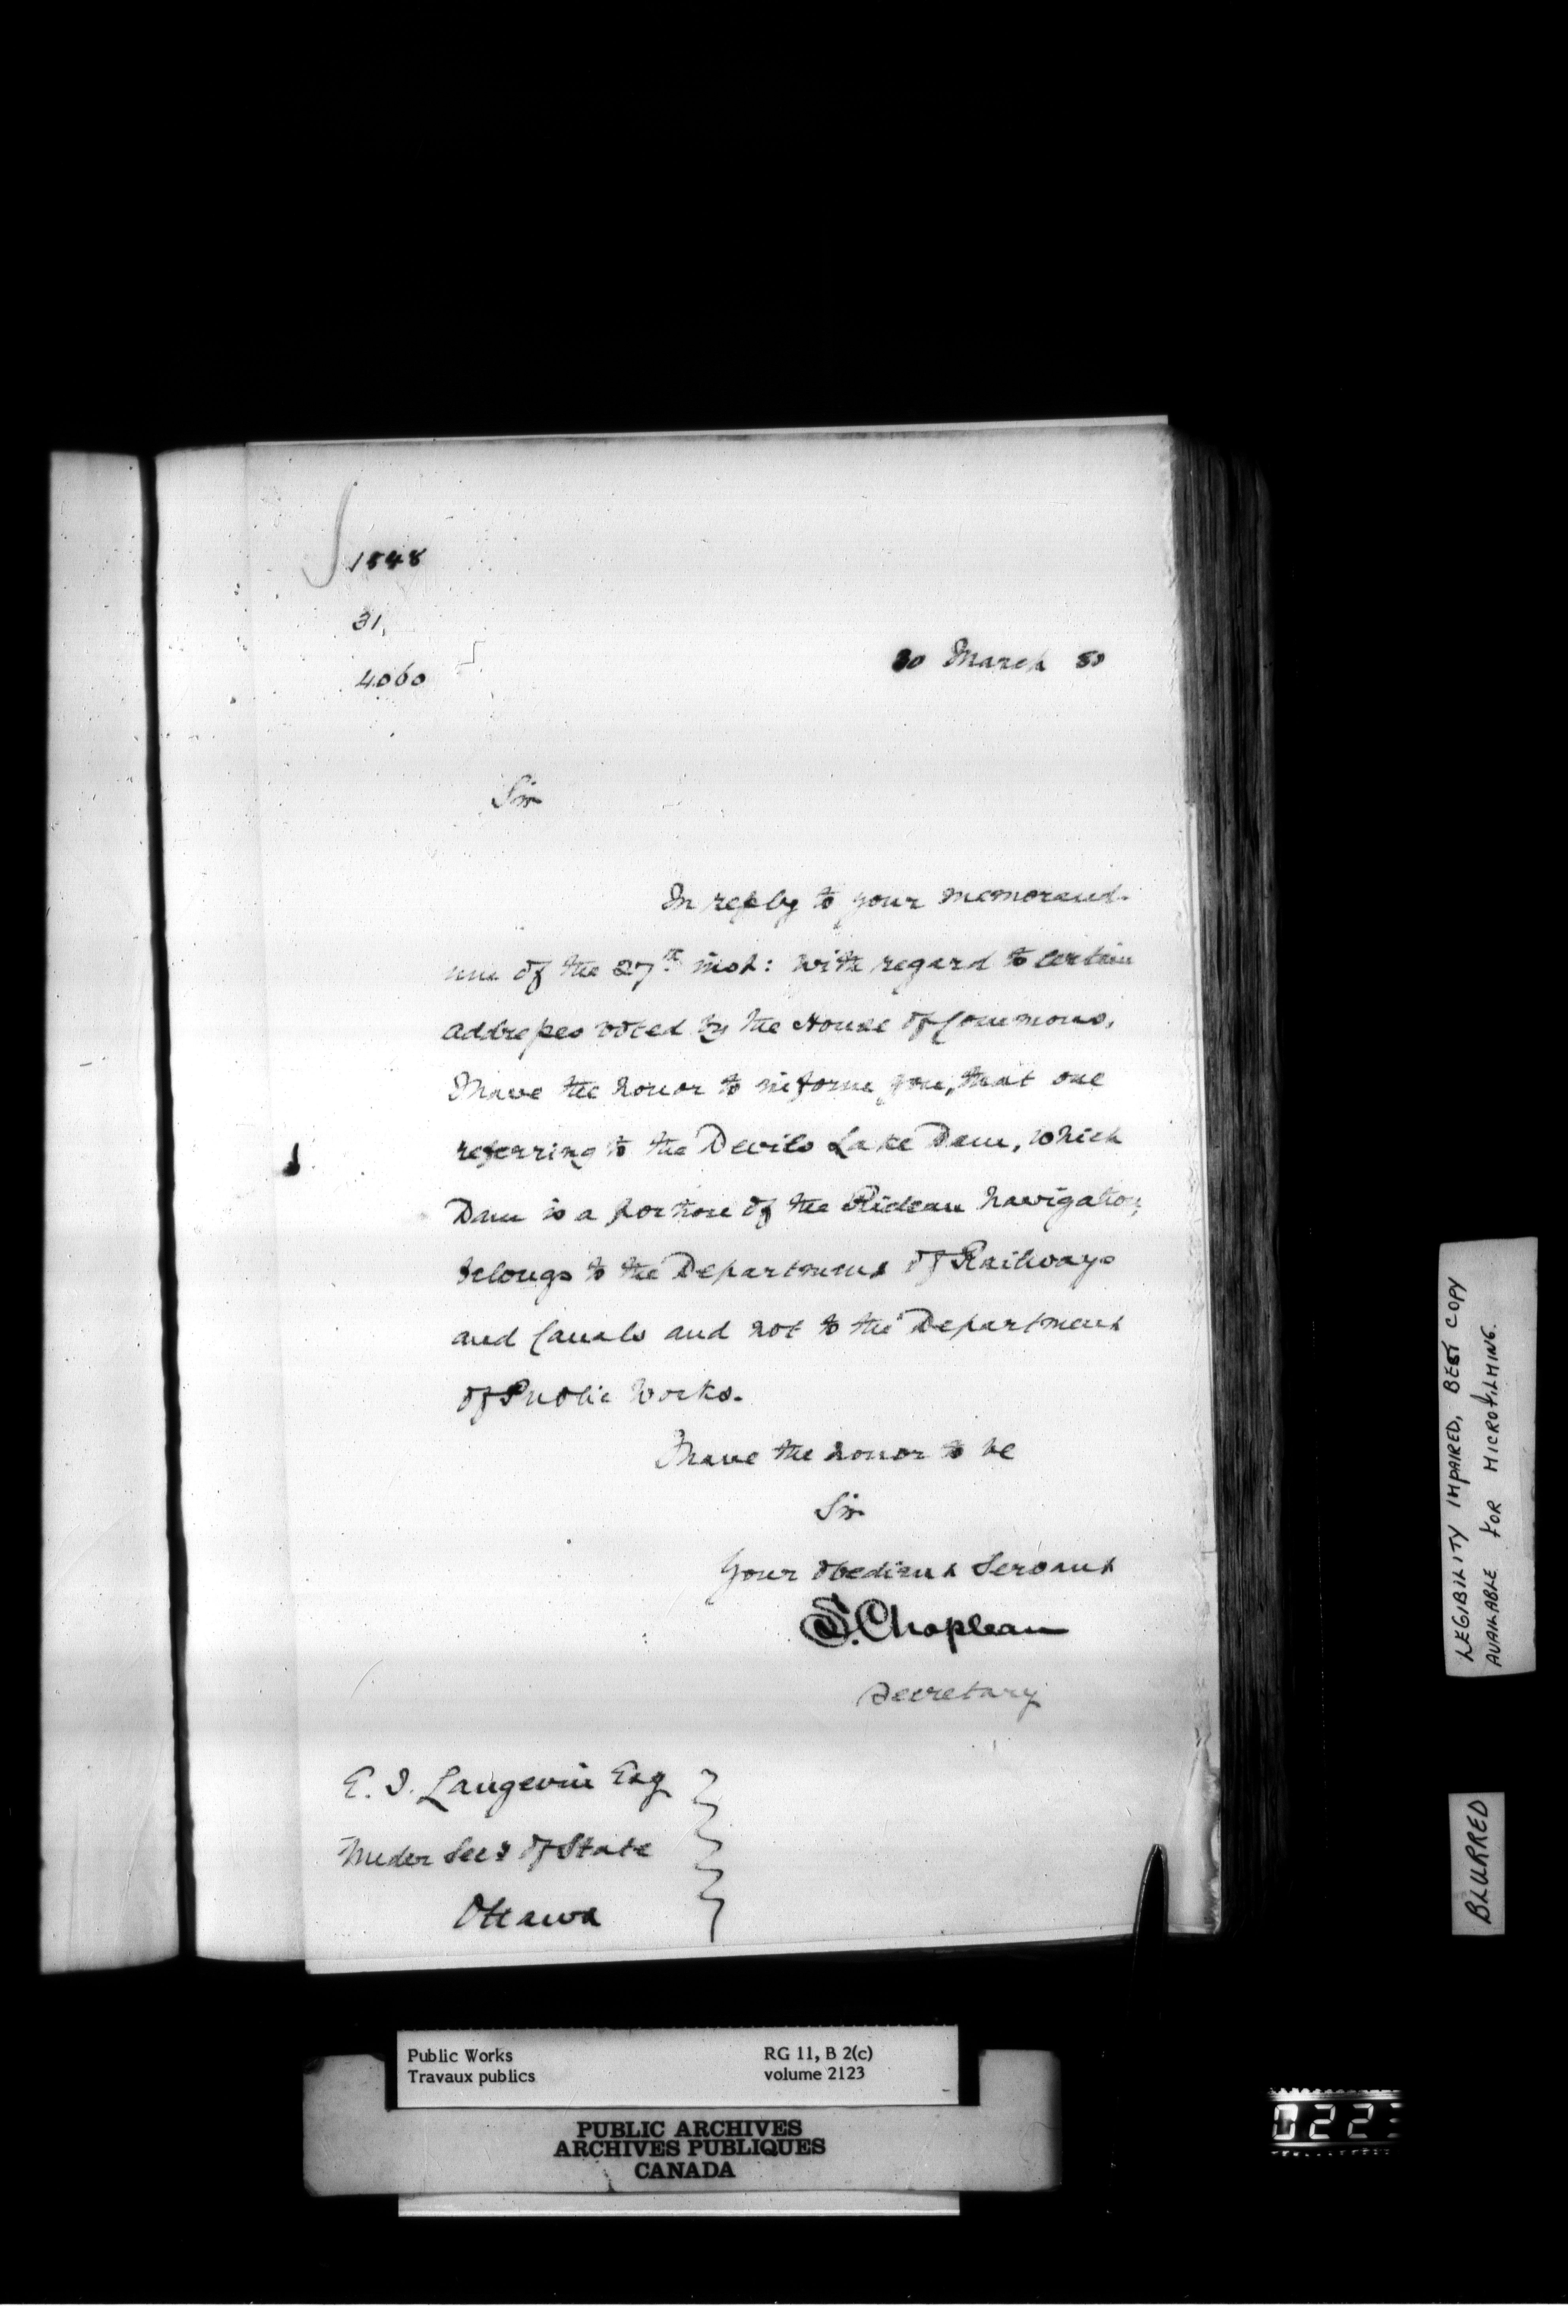 1548
31,
4060
30 March 80
Sir
In reply to your memorand-
um of the 27th inst: with regard to certain
addresses voted by the House of Commons,
I have the honor to inform you, that one
referring to the Devils Lake Dam, which
Dam is a portion of the Rideau Navigation,
belongs to the Department of Railways
and Canals and not to the Department
of Public Works.
I have the honor to be
Sir
Your obedient Servant
S. Chapleau
Secretary
E. J. Langevin Esq
Under Secy of State
Ottawa
LEGIBILITY IMPAIRED, BEST COPY
AVAILABLE FOR MICROFILMING.
BLURRED
Public Works
Travaux publics
RG 11, B 2(c)
volume 2123
PUBLIC ARCHIVES
ARCHIVES PUBLIQUES
CANADA